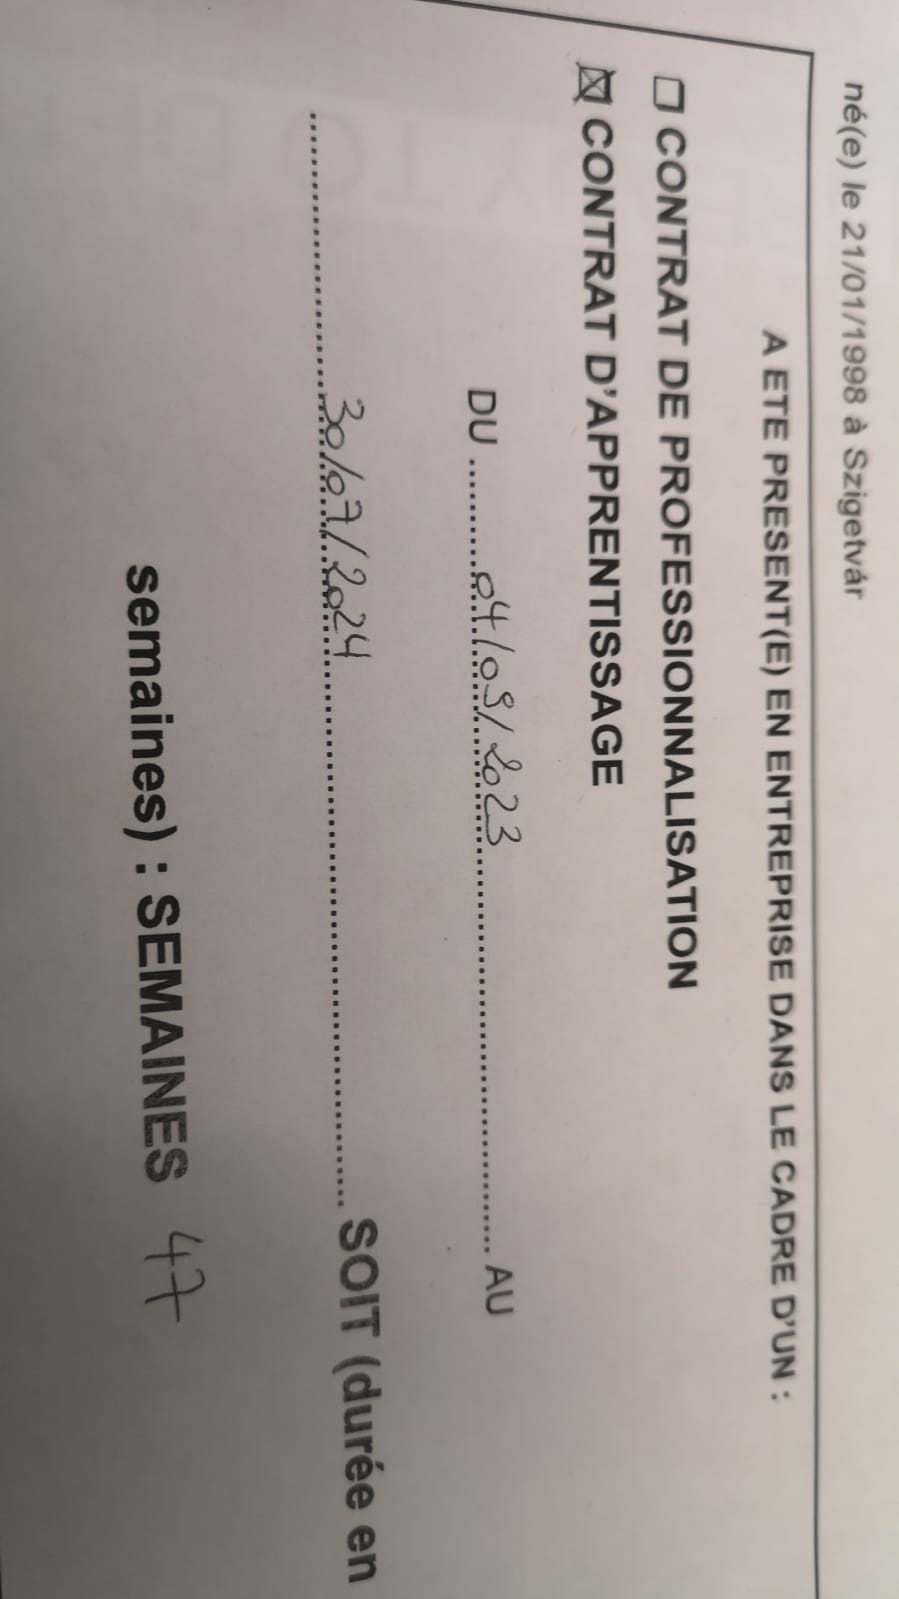 né(e) le 21/01/1998 à Szigetvár
A ETE PRESENT(E) EN ENTREPRISE DANS LE CADRE D'UN :
☐ CONTRAT DE PROFESSIONNALISATION
☒ CONTRAT D'APPRENTISSAGE
DU ..........04/09/2023........................................ AU
..............................30/07/2024........................................ SOIT (durée en
semaines) : SEMAINES 47